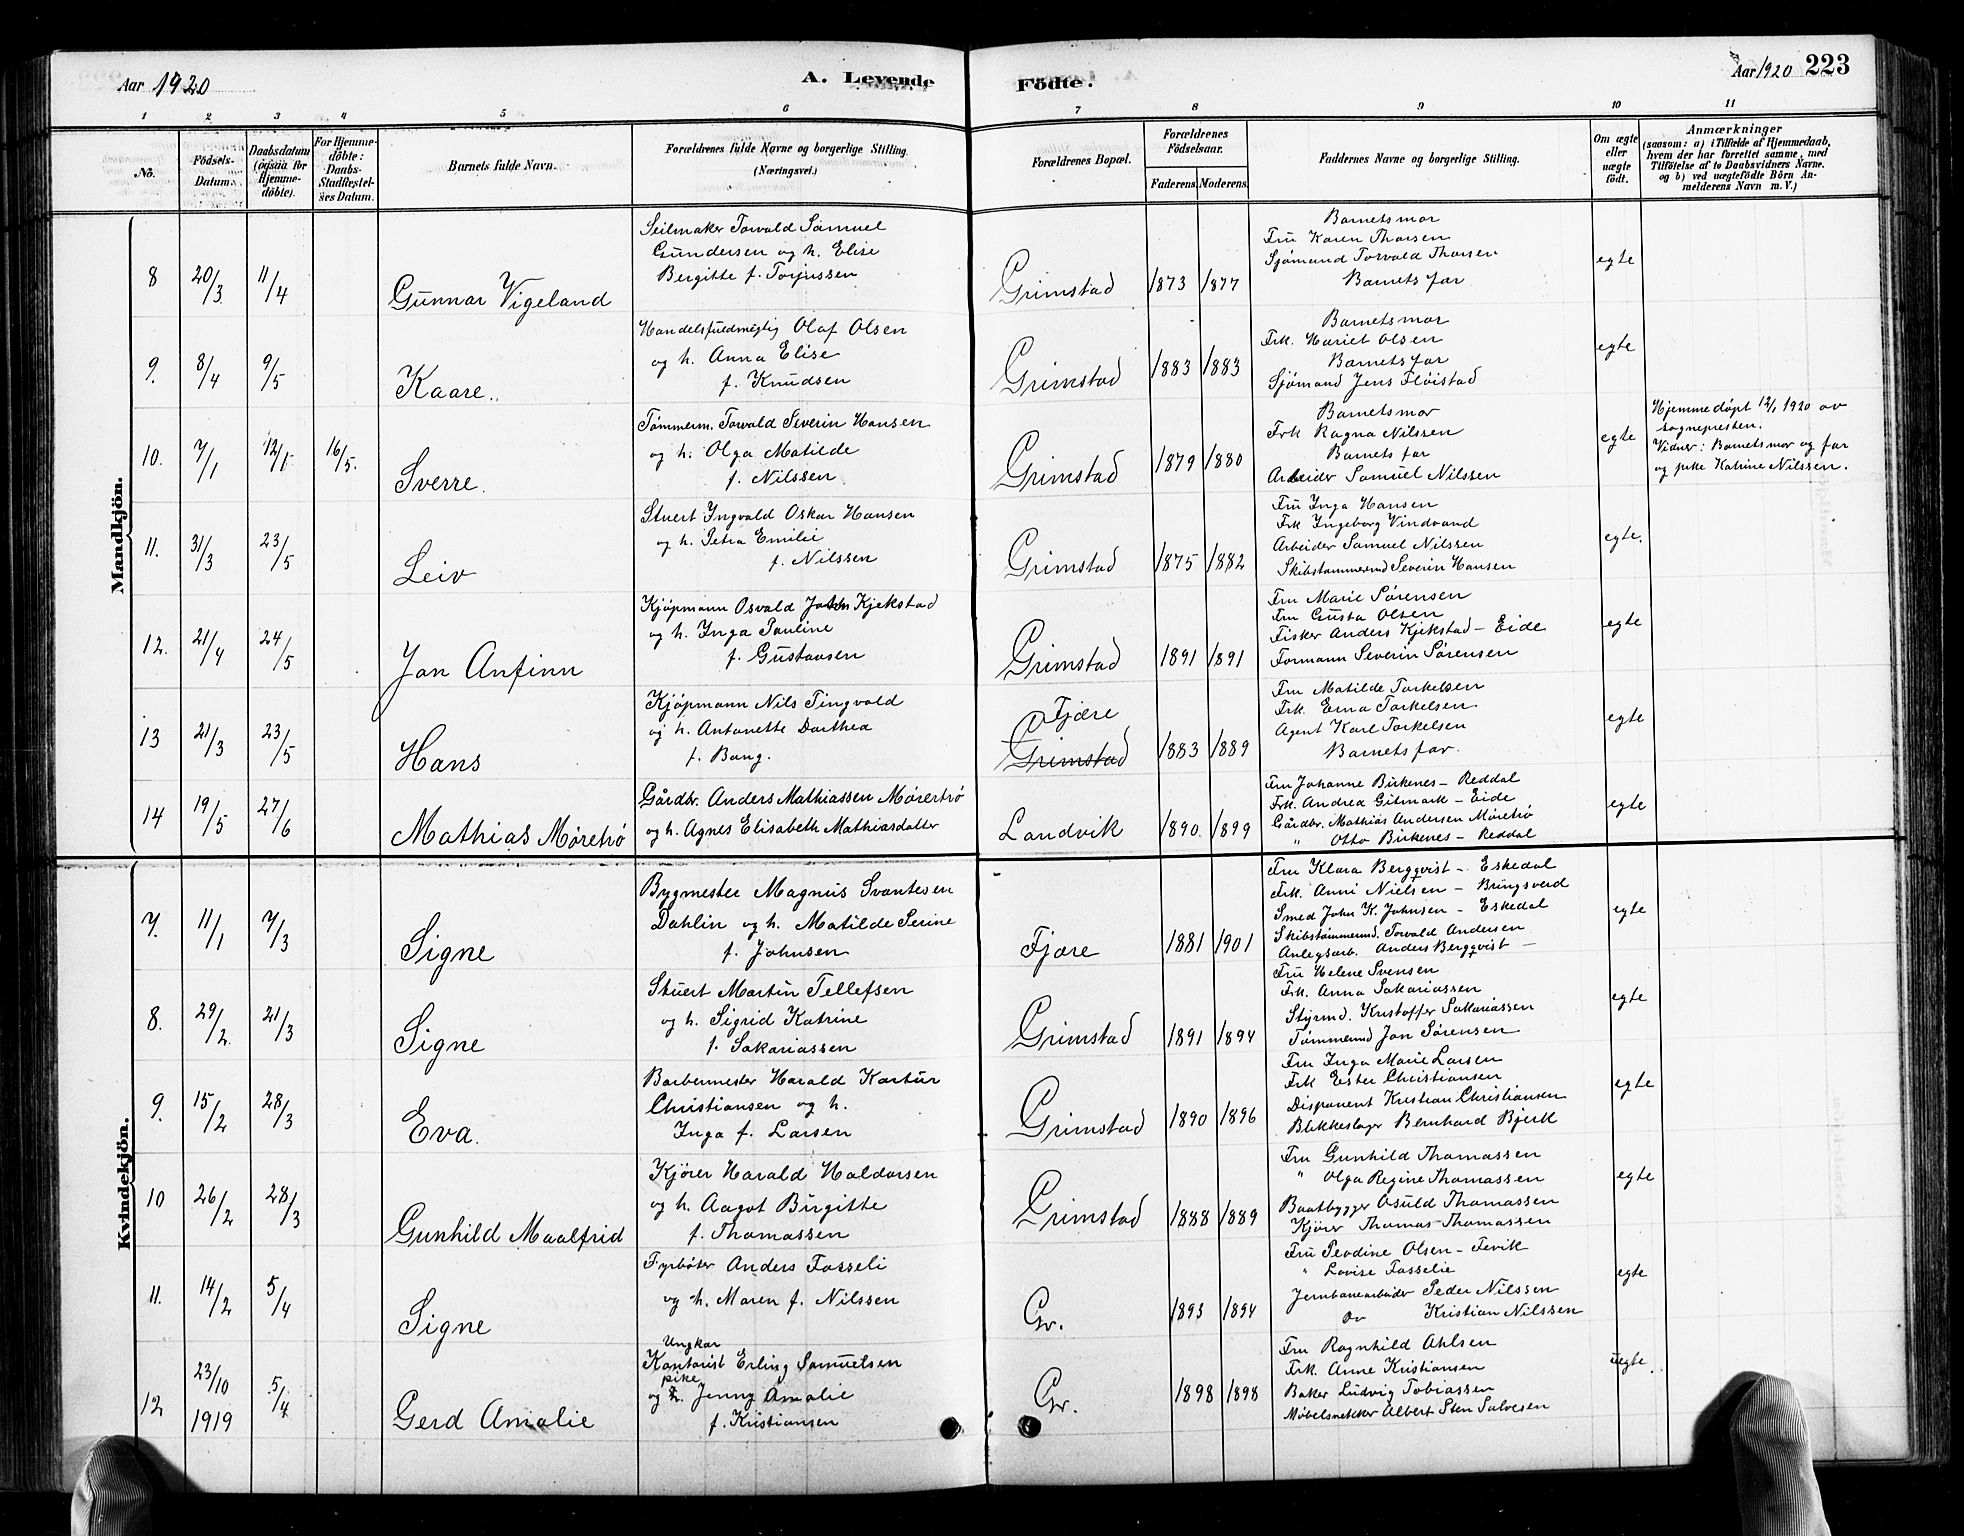 Aar 1920
A. Levende
Födte.
Aar 1920 223
1 2 3 4 5 6 7 8 9 10 11
No.
Födsels-
Datum.
Daabsdatum
(ogsaa for
Hjemme-
döbte).
For Hjemme-
döbte:
Daabs-
Stadfæstel-
ses Datum.
Barnets fulde Navn.
Forældrenes fulde Navne og borgerlige Stilling.
(Næringsvei.)
Forældrenes Bopæl.
Forældrenes
Födselsaar.
Faderens. Moderens.
Faddernes Navne og borgerlige Stilling.
Om ægte
eller
uægte
födt.
Anmærkninger
(saasom: a) i Tilfælde af Hjemmedaab,
hvem der har forrettet samme, med
Tilföielse af to Daabsvidners Navne.
og b) ved uægtefödte Börn An-
melderens Navn m. V.)
Mandkjön.
8 20/3 11/4 Gunnar Vigeland
Seilmaker Torvald Samuel
Gundersen og h. Elise
Bergitte f. Torjussen
Grimstad 1873 1877
Barnets mor
Fru Karen Thorsen
Sjømand Torvald Thorsen
Barnets far
egte
9. 8/4 9/5 Kaare.
Handelsfuldmegtig Olaf Olsen
og h. Anna Elise
f. Knudsen
Grimstad 1883 1883
Barnets mor
Frk. Hariet Olsen
Barnets far
Sjømand Jens Fløistad
egte
10. 7/1 12/1 16/5. Sverre.
Tømmerm. Torvald Severin Hansen
og h. Olga Matilde
f. Nilssen
Grimstad 1879 1880
Barnets mor
Frk Ragna Nilssen
Barnets far
Arbeider Samuel Nilssen
egte
Hjemmedøpt 12/1 1920 av
sognepresten.
Vidner: Barnets mor og far
og pike Katrine Nilssen.
11. 31/3 23/5 Leiv
Stuert Ingvald Oskar Hansen
og h. Petra Emilie
f. Nilssen
Grimstad 1875 1882
Fru Inga Hansen
Frk Ingeborg Vindvand
Arbeider Samuel Nilssen
Skibstømmermd Severin Hansen
egte.
12. 21/4 24/5 Jan Anfinn
Kjøpmann Osvald John Kjekstad
og h. Inga Pauline
f. Gustavsen
Grimstad 1891 1891
Fru Marie Sørensen
Fru Gusta Olsen
Fisker Anders Kjekstad - Eide
Formann Severin Sørensen
egte
13 21/3 23/5 Hans
Kjøpmann Nils Tingvold
og h. Antonette Dorthea
f. Bang.
Fjære
Grimstad 1883 1889
Fru Matilde Torkelsen
Frk. Erna Torkelsen.
Agent Karl Torkelsen
Barnets far.
egte
14 19/5 27/6 Mathias Møretrø
Gårdbr. Anders Mathiassen Møretrø
og h. Agnes Elisabeth Mathiasdatter
Landvik 1890. 1899
Fru Johanne Birkenes - Reddal
Frk. Andrea Gitmark - Eide
Gårdbr. Mathias Andersen Møretrø
" Otto Birkenes - Reddal
egte
Kvindekjön.
7. 11/1 7/3 Signe
Bygmester Magnus Svantesen
Dahlin og h. Matilde Serine
f. Johnsen
Fjære 1881 1901
Fru Klara Bergqvist - Eskedal
Frk. Anni Nielsen - Bringsverd
Smed John K. Johnsen - Eskedal
Skibstømmermd. Torvald Andersen
Anlegsarb. Anders Bergqvist -
egte
8. 29/2 21/3 Signe
Stuert Martin Tellefsen
og h. Sigrid Katrine
f. Sakariassen
Grimstad 1891 1894
Fru Helene Svensen
Frk. Anna Sakariassen
Styrmd. Kristoffer Sakariassen
Tømmermd Jan Sørensen
egte
9. 15/2 28/3 Eva.
Barbermester Harald Kartur
Christiansen og h.
Inga f. Larsen
Grimstad 1890 1896
Fru Inga Marie Larsen
Frk Ester Christiansen
Disponent Kristian Christiansen
Blikkeslager Bernhard Bjerk
egte
10 26/2 28/3 Gunhild Maalfrid
Kjører Harald Haldorsen
og h. Aagot Birgitte
f. Thomassen
Grimstad 1888 1889
Fru Gunhild Thomassen
" Olga Regine Thomassen
Baatbygger Osuld Thomassen
Kjører Thomas Thomassen
egte
11. 14/2 5/4 Signe
Fyrbøter Anders Fosseli
og h. Maren f. Nilssen
Gr. 1893 1894
Fru Peodine Olsen - Fevik
" Lovise Fosselie
Jernbanearbeider Peder Nilssen
Do Kristian Nilssen
egte
12 23/10 1919 5/4 Gerd Amalie
Ungkar
Kontorist Erling Samuelsen
pike
og h. Jenny Amalie
f. Kristiansen
Gr. 1898 1898
Fru Ragnhild Ahlsen
Frk. Anne Kristiansen
Baker Ludvig Tobiassen
Møbelsnekker Albert Sten Salvesen
uegte